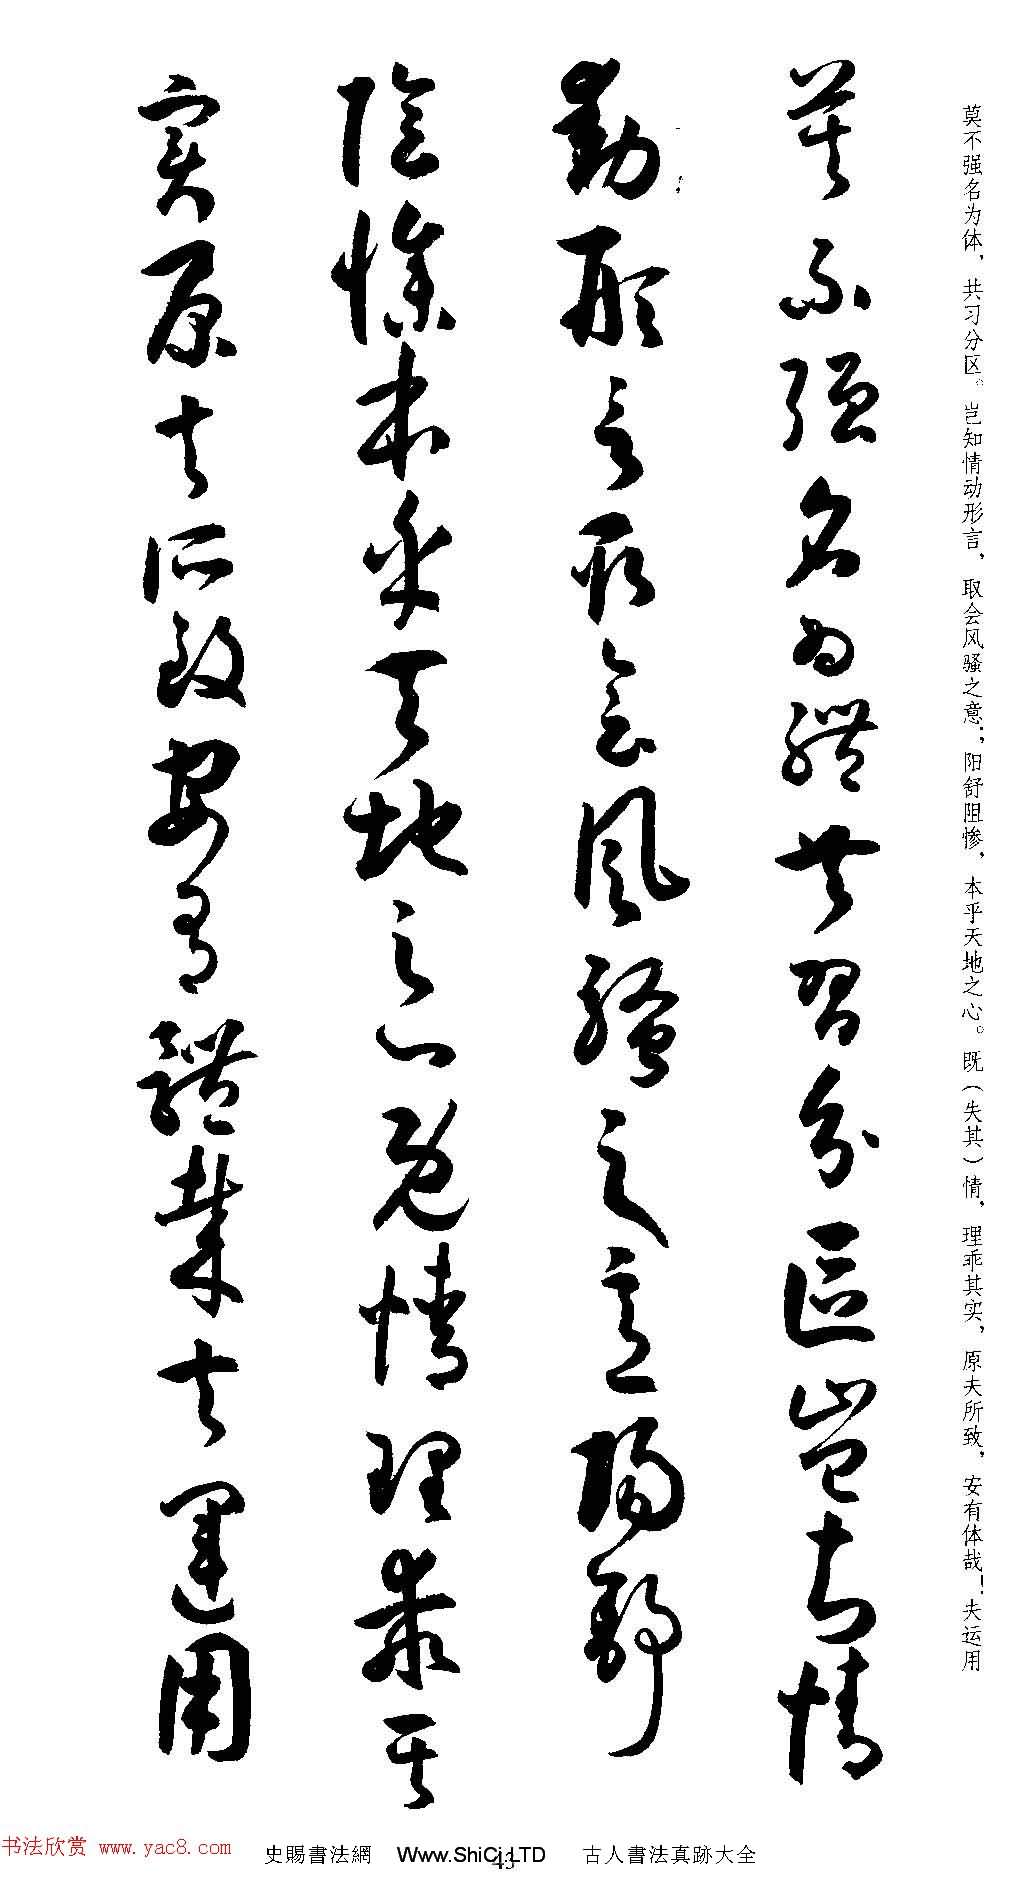 莫不强名为体，共习分区。岂知情动形言，取会风骚之意；阳舒阻惨，本乎天地之心。既（失其）情，理乖其实，原夫所致，安有体哉！夫运用
莫不强名為體共習分區豈知情
動形言取會風騷之意陽舒
陰慘本乎天地之心既情理乖其
實原夫所致安有體哉夫運用
书法欣赏 www.yac8.com
史賜書法網 Www.ShiCi.LTD 古人書法真跡大全
43